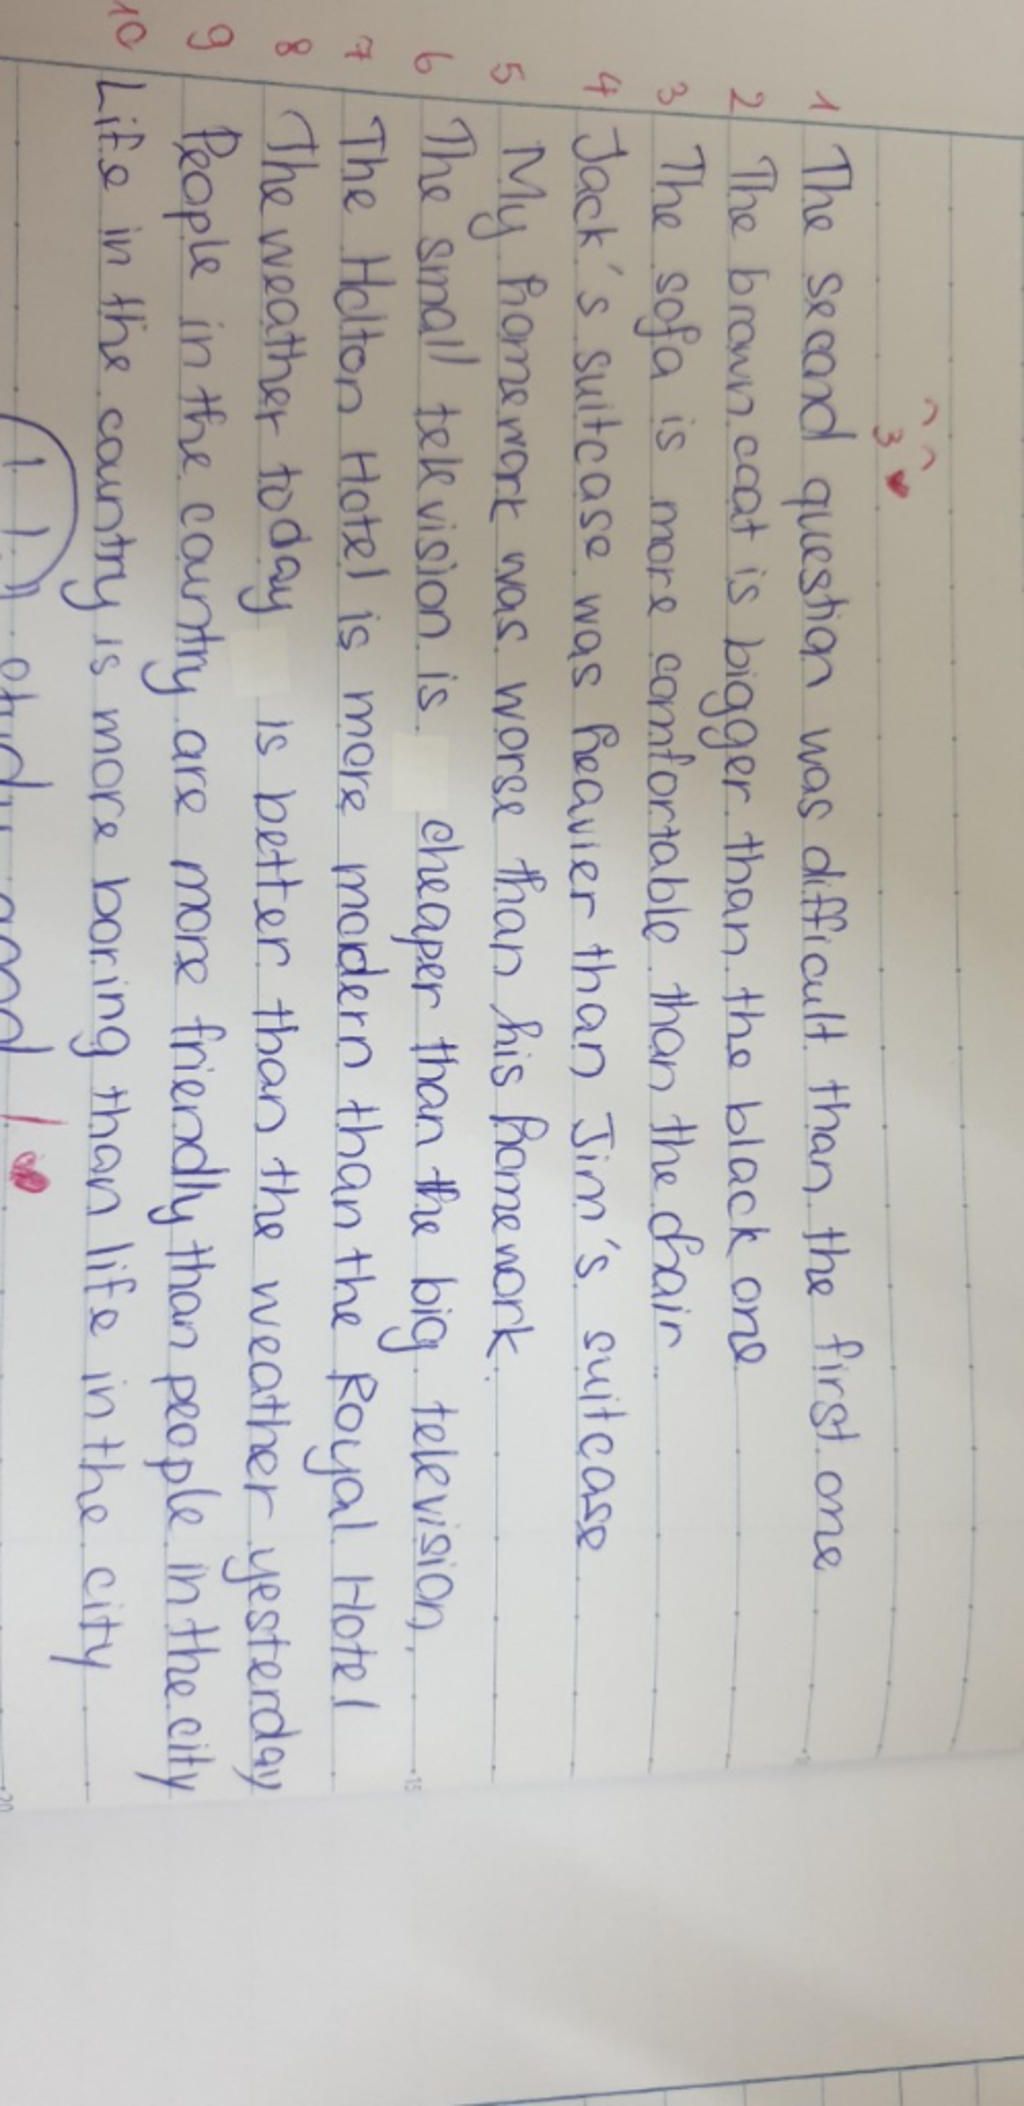 1 The second question was difficult than the first one
2 The brown coat is bigger than the black one
3 The sofa is more comfortable than the chair
4 Jack's suitcase was heavier than Jim's suitcase
5 My homework was worse than his homework.
6 The small television is cheaper than the big television.
7 The Holton Hotel is more modern than the Royal Hotel
8 The weather today is better than the weather yesterday
9 People in the country are more friendly than people in the city
10 Life in the country is more boring than life in the city
15
20